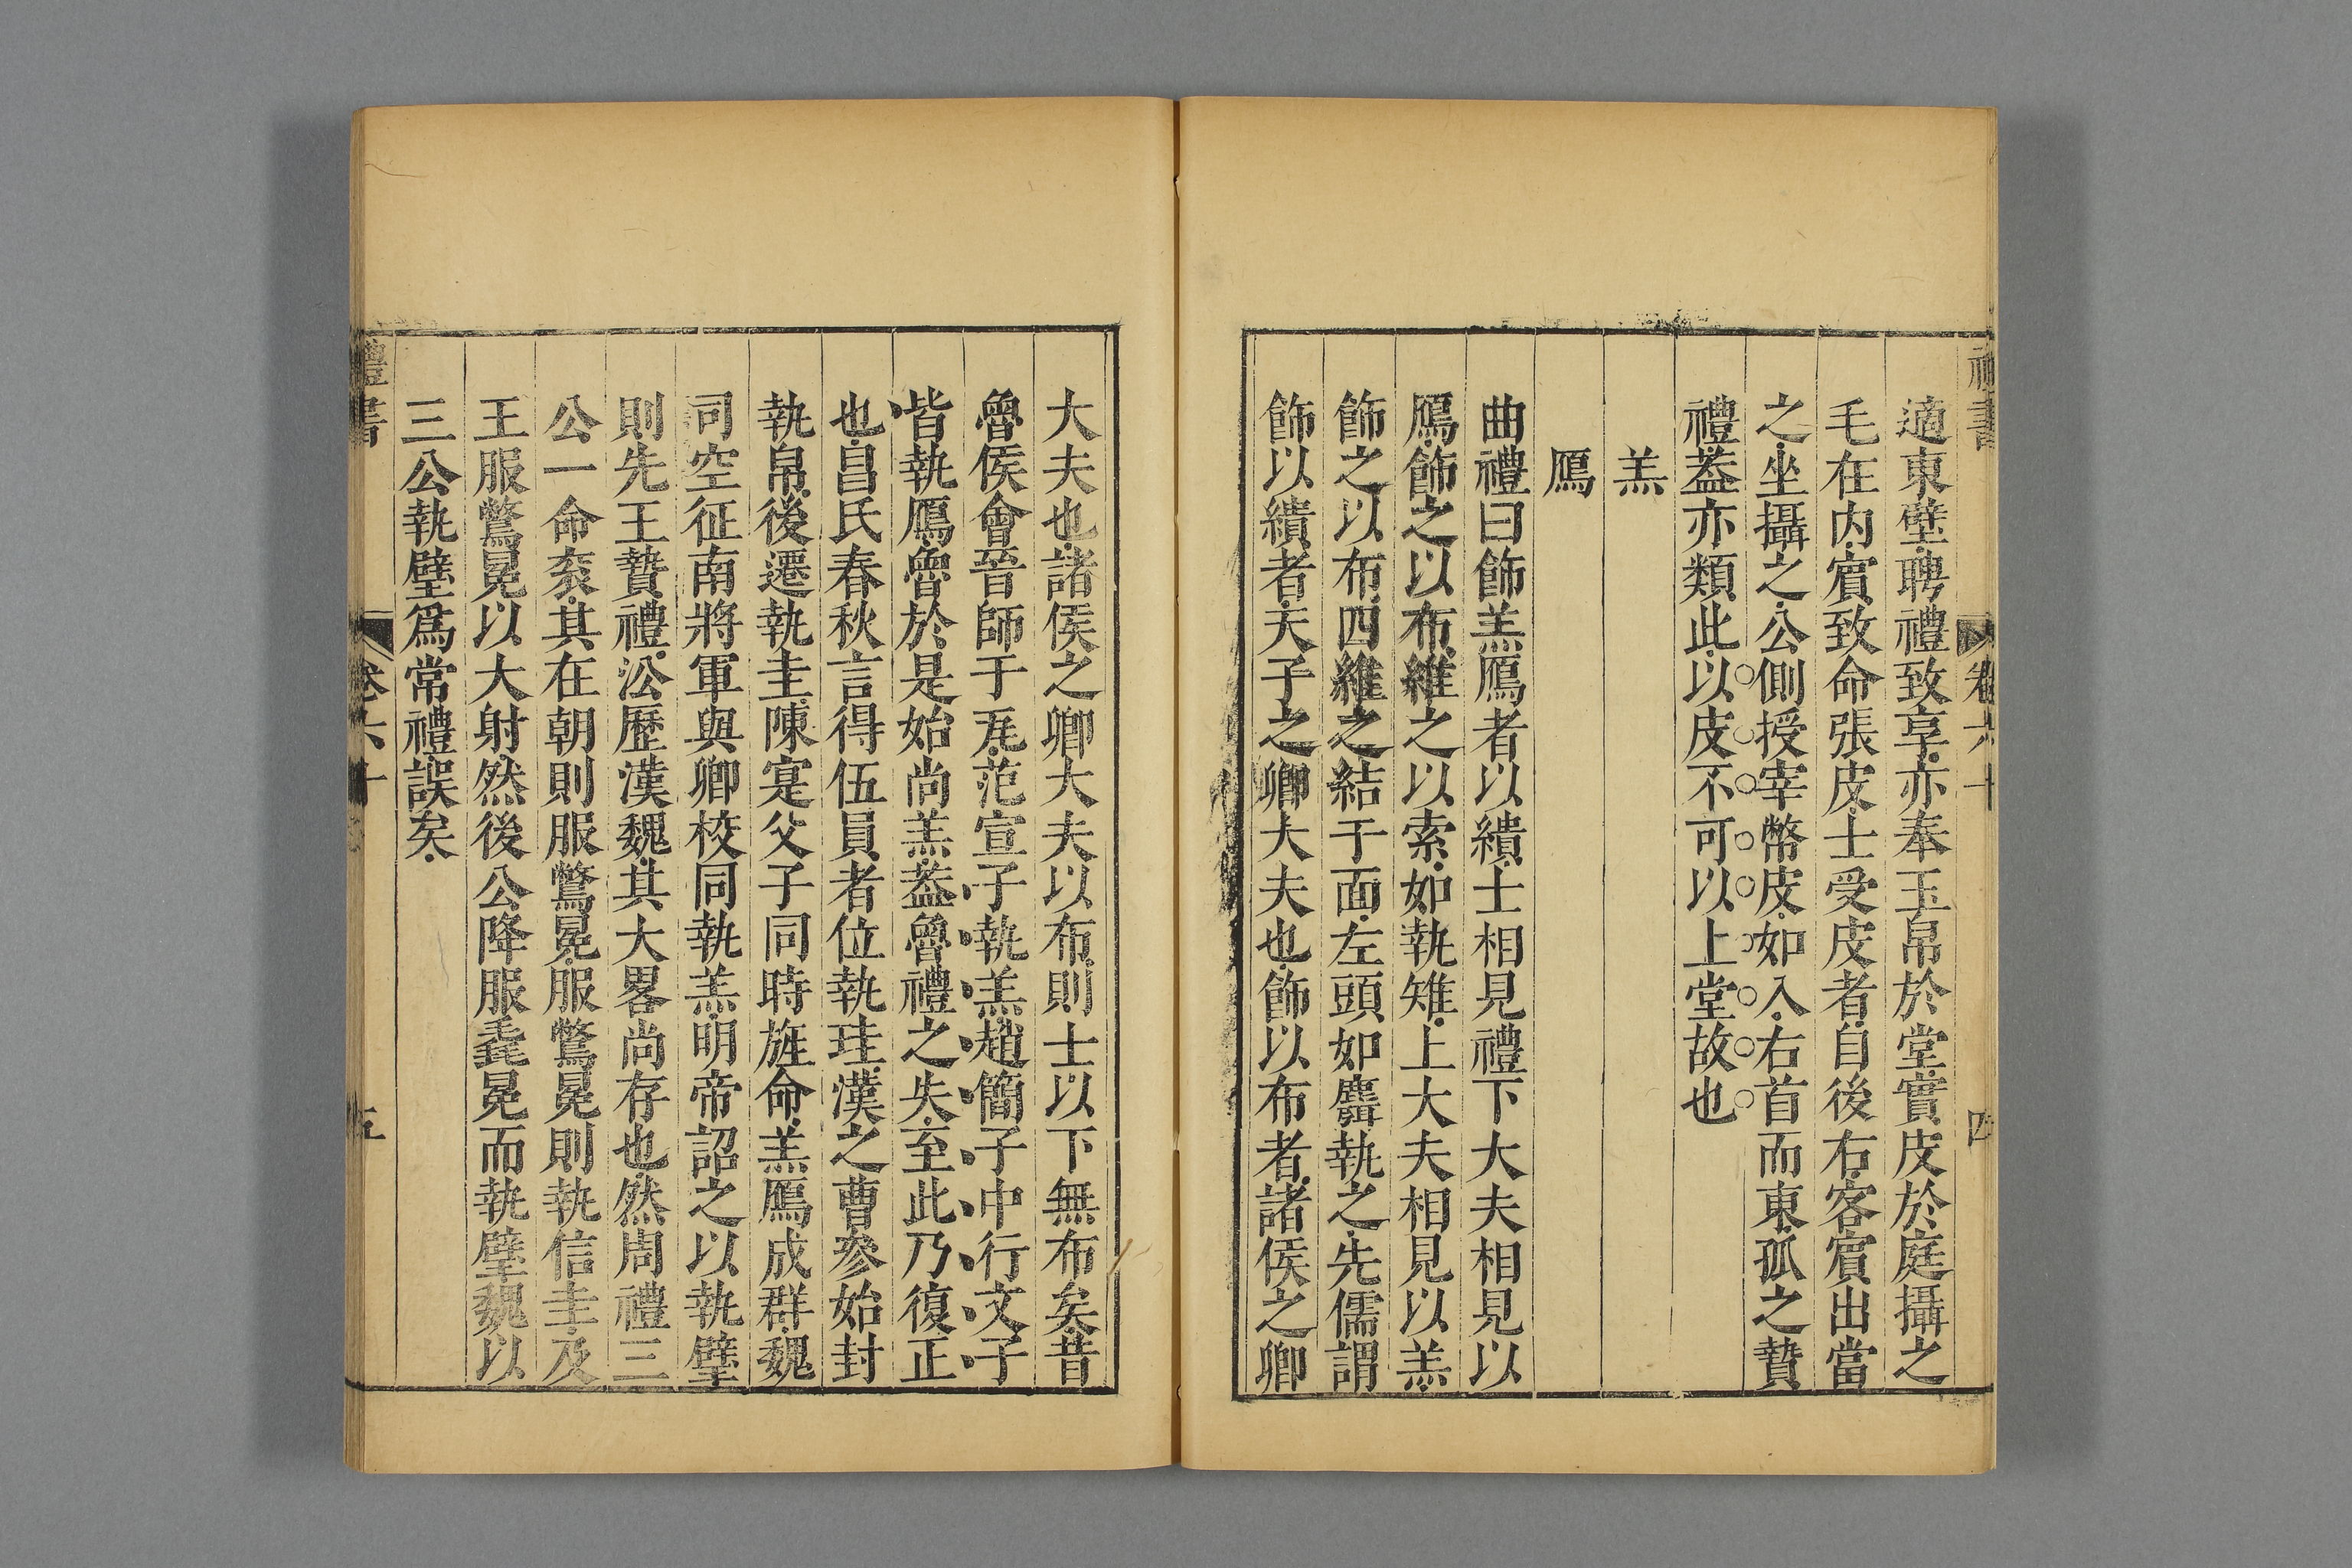 禮書
卷六十
四
適東壁聘禮致享亦奉玉帛於堂實皮於庭攝之
毛在内賔致命張皮士受皮者自後右客賔出當
之坐攝之公側授宰幣皮如入右首而東孤之贄
禮葢亦類此以皮不可以上堂故也
羔
鴈
曲禮曰飾羔鴈者以繢士相見禮下大夫相見以
鴈飾之以布維之以索如執雉上大夫相見以羔
飾之以布四維之結于面左頭如麛執之先儒謂
飾以繢者天子之卿大夫也飾以布者諸侯之卿
大夫也諸侯之卿大夫以布則士以下無布矣昔
魯侯會晉師于瓦范宣子執羔趙簡子中行文子
皆執鴈魯於是始尚羔葢魯禮之失至此乃復正
也吕氏春秋言得伍員者位執珪漢之曹參始封
執帛後遷執圭陳寔父子同時旌命羔鴈成群魏
司空征南將軍與卿校同執羔明帝詔之以執璧
則先王贄禮㳂歷漢魏其大畧尚存也然周禮三
公一命衮其在朝則服鷩冕服鷩冕則執信圭及
王服鷩冕以大射然後公降服毳冕而執璧魏以
三公執璧爲常禮誤矣
禮書
卷六十
五